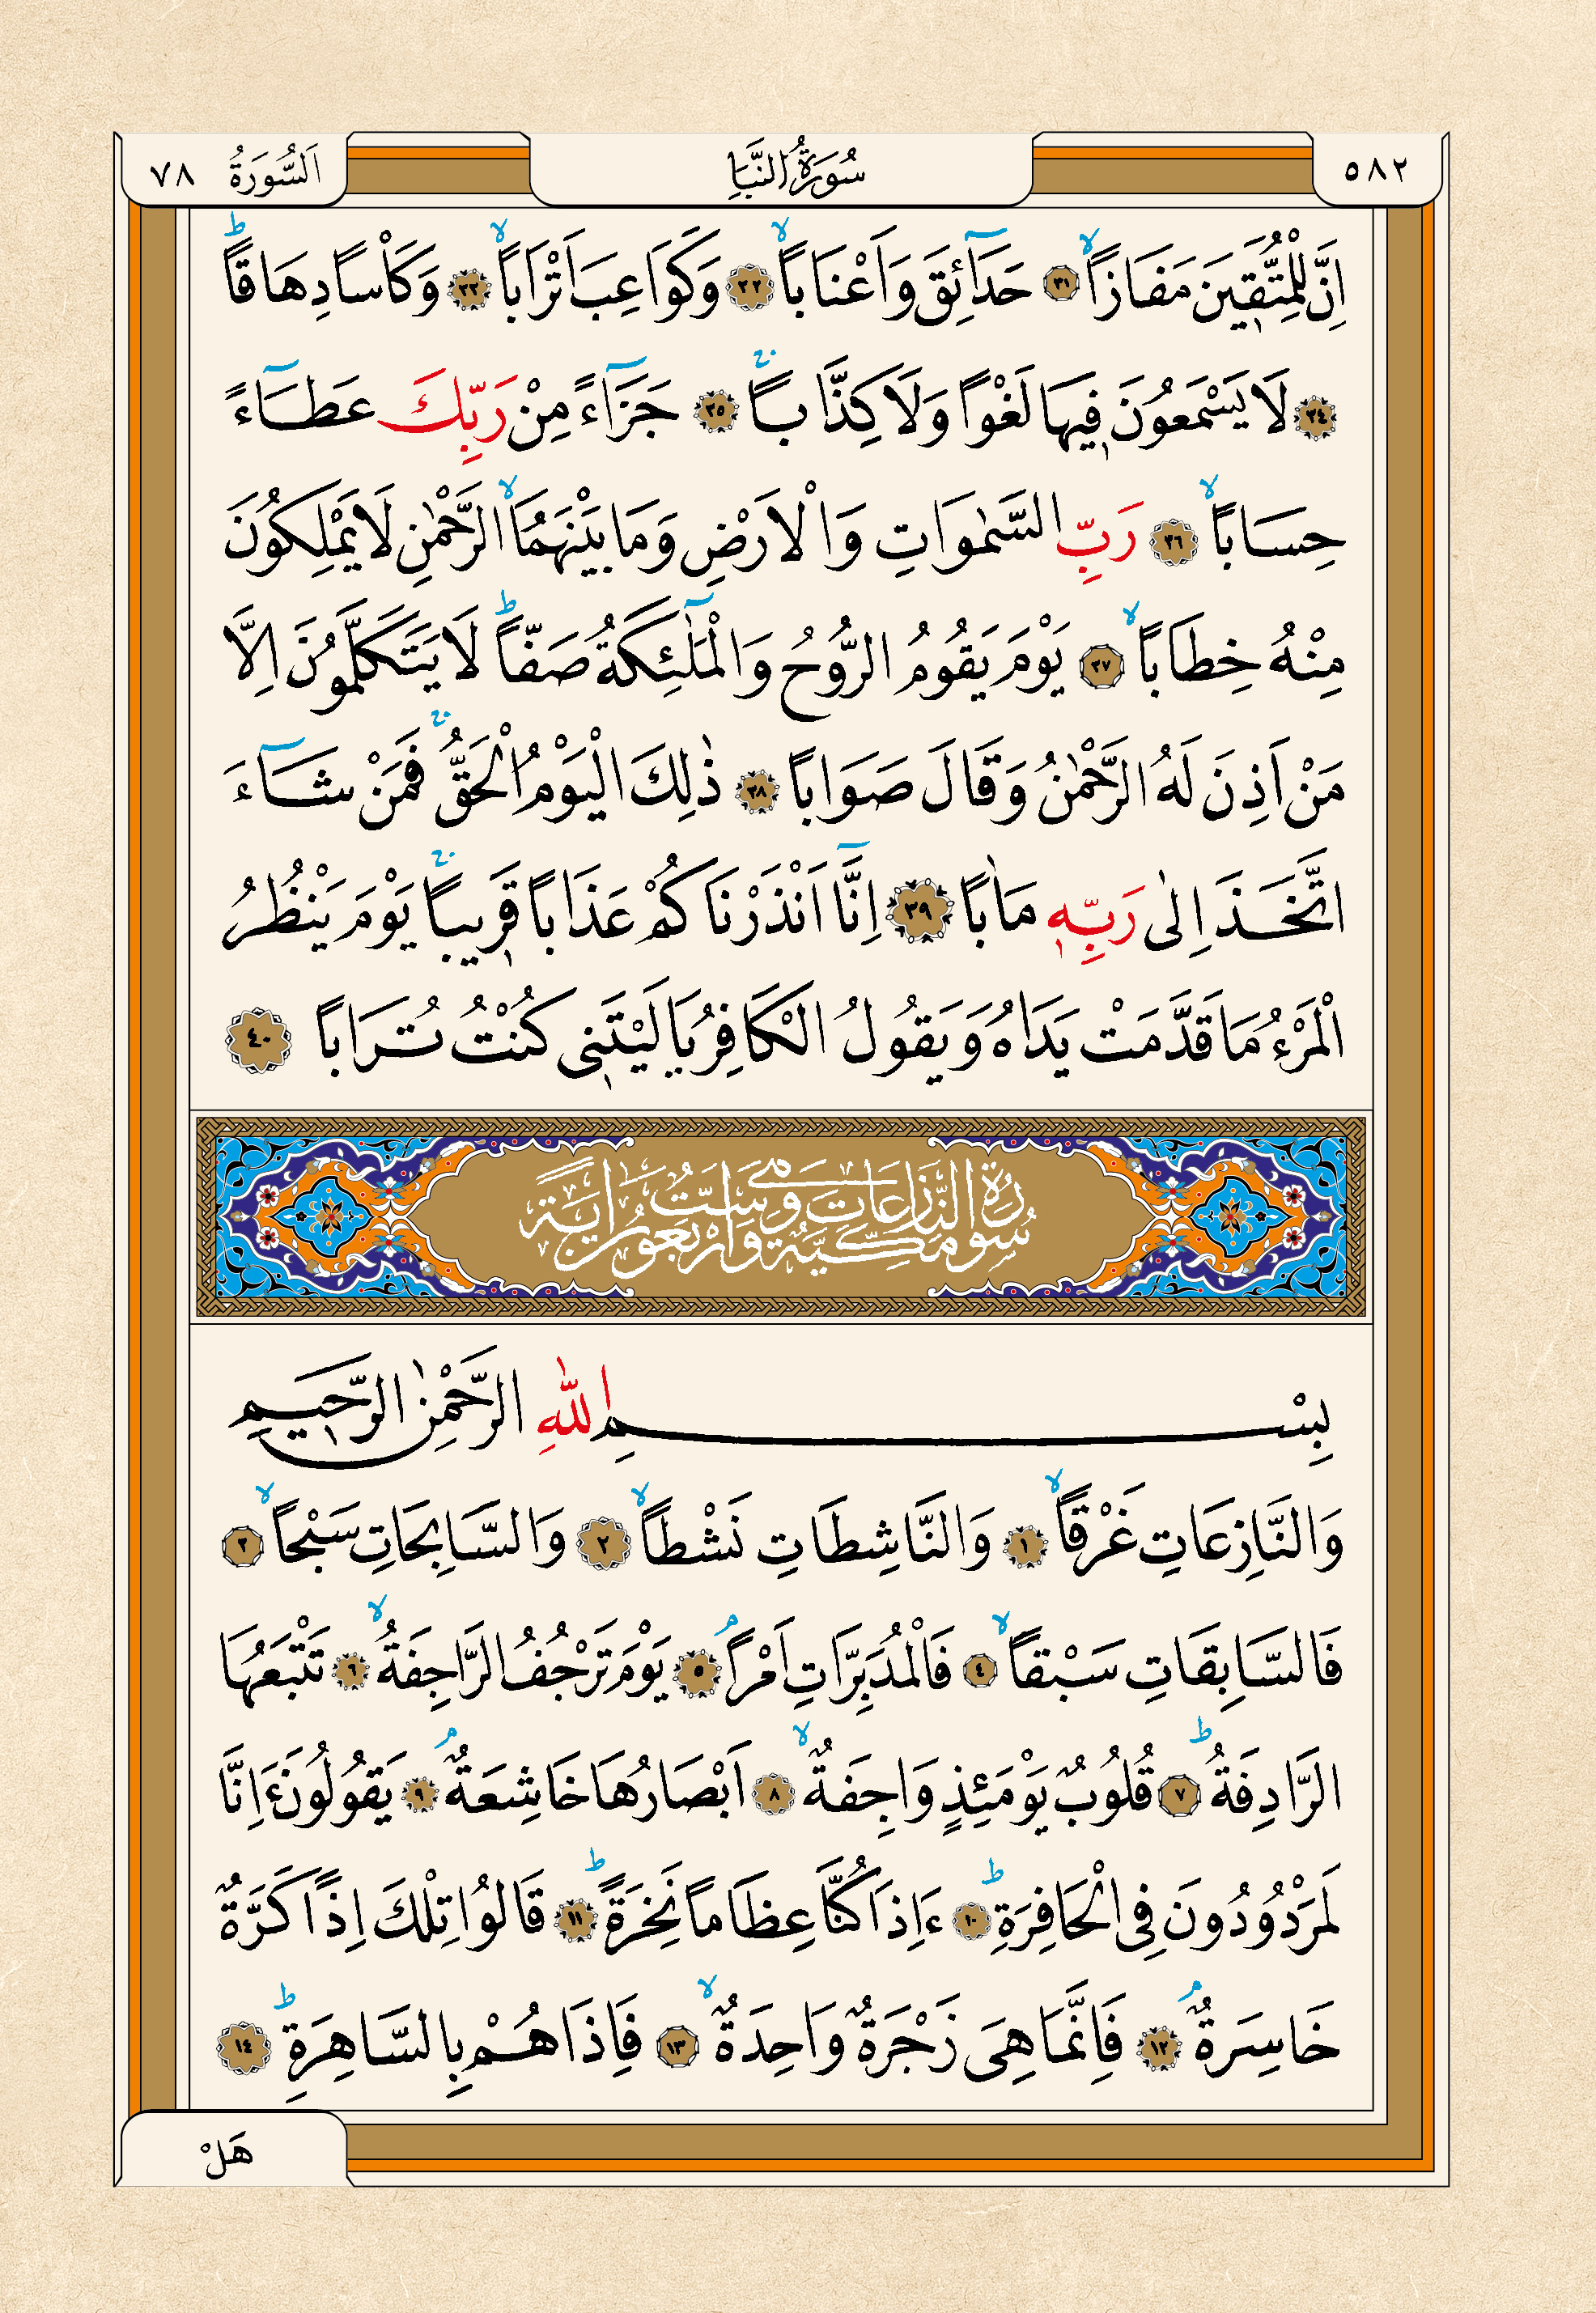 ٥٨٢ سُورَةُ النَّبَأِ اَلسُّورَةُ ٧٨
اِنَّ لِلْمُتَّقِينَ مَفَازاًۙ ٣١ حَدَٓائِقَ وَاَعْنَاباًۙ ٣٢ وَكَوَاعِبَ اَتْرَاباًۙ ٣٣ وَكَأْساً دِهَاقاًۜ
٣٤ لَا يَسْمَعُونَ فِيهَا لَغْواً وَلَا كِذَّاباًۚ ٣٥ جَزَٓاءً مِنْ رَبِّكَ عَطَٓاءً
حِسَاباًۙ ٣٦ رَبِّ السَّمٰوَاتِ وَالْاَرْضِ وَمَا بَيْنَهُمَاۙ الرَّحْمٰنِ لَا يَمْلِكُونَ
مِنْهُ خِطَاباًۙ ٣٧ يَوْمَ يَقُومُ الرُّوحُ وَالْمَلٰٓئِكَةُ صَفّاًۜ لَا يَتَكَلَّمُونَ اِلَّا
مَنْ اَذِنَ لَهُ الرَّحْمٰنُ وَقَالَ صَوَاباً ٣٨ ذٰلِكَ الْيَوْمُ الْحَقُّۚ فَمَنْ شَٓاءَ
اتَّخَذَ اِلٰى رَبِّهِ مَاٰباً ٣٩ اِنَّٓا اَنْذَرْنَاكُمْ عَذَاباً قَرِيباًۚ يَوْمَ يَنْظُرُ
الْمَرْءُ مَا قَدَّمَتْ يَدَاهُ وَيَقُولُ الْكَافِرُ يَا لَيْتَنِي كُنْتُ تُرَاباً ٤٠
سُورَةُ النَّازِعَاتِ مَكِّيَّةٌ وَهِيَ سِتٌّ وَاَرْبَعُونَ اٰيَةً
بِسْمِ اللّٰهِ الرَّحْمٰنِ الرَّحِيمِ
وَالنَّازِعَاتِ غَرْقاًۙ ١ وَالنَّاشِطَاتِ نَشْطاًۙ ٢ وَالسَّابِحَاتِ سَبْحاًۙ ٣
فَالسَّابِقَاتِ سَبْقاًۙ ٤ فَالْمُدَبِّرَاتِ اَمْراًۢ ٥ يَوْمَ تَرْجُفُ الرَّاجِفَةُۙ ٦ تَتْبَعُهَا
الرَّادِفَةُۜ ٧ قُلُوبٌ يَوْمَئِذٍ وَاجِفَةٌۙ ٨ اَبْصَارُهَا خَاشِعَةٌۢ ٩ يَقُولُونَ ءَاِنَّا
لَمَرْدُودُونَ فِي الْحَافِرَةِۜ ١٠ ءَاِذَا كُنَّا عِظَاماً نَخِرَةًۜ ١١ قَالُوا تِلْكَ اِذاً كَرَّةٌ
خَاسِرَةٌۢ ١٢ فَاِنَّمَا هِيَ زَجْرَةٌ وَاحِدَةٌۙ ١٣ فَاِذَا هُمْ بِالسَّاهِرَةِۜ ١٤
هَلْ